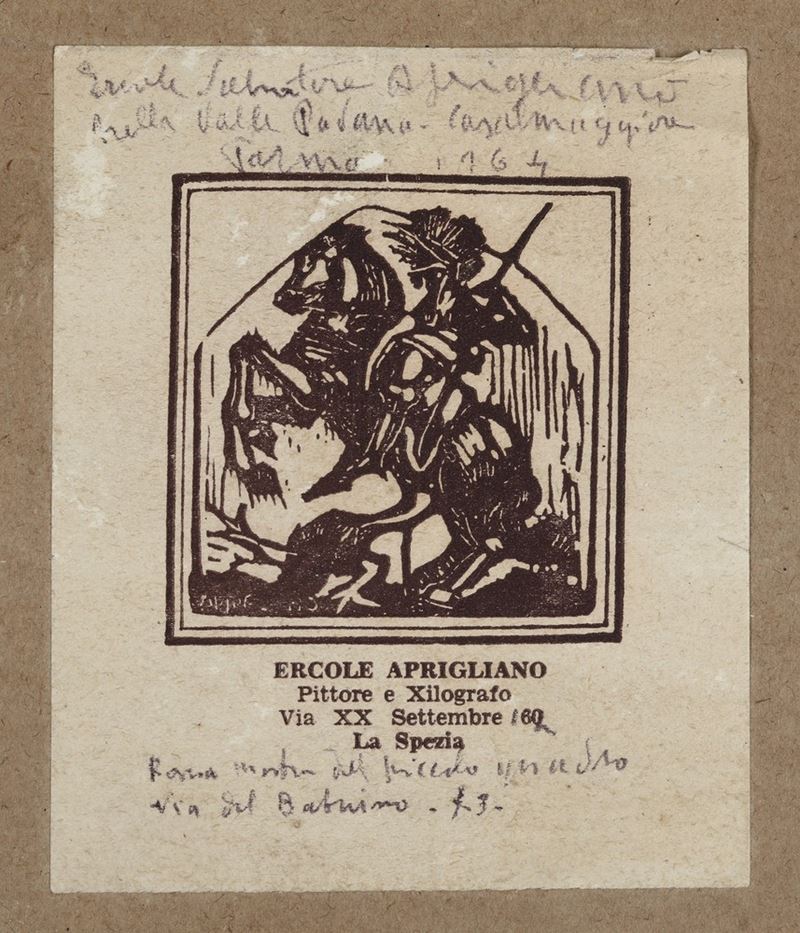 Ercole Salvatore Aprigliano
nella Valle Padana - Casalmaggiore
Parma 1964
ERCOLE APRIGLIANO
Pittore e Xilografo
Via XX Settembre 160
La Spezia
Roma mostra del piccolo quadro
Via del Babuino -